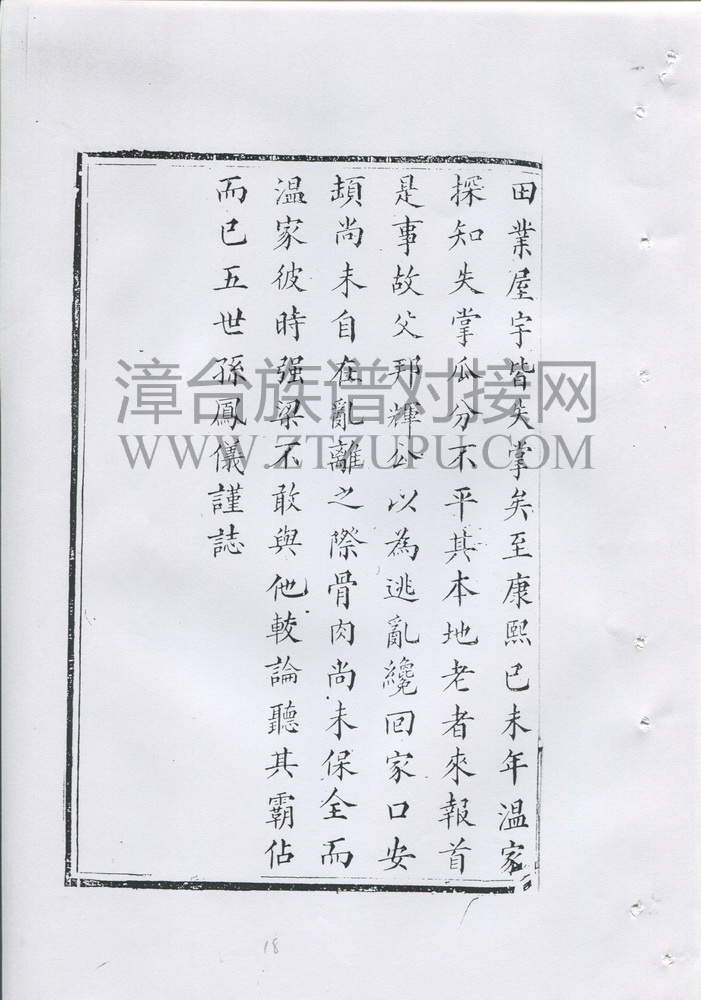 田業屋宇皆失掌矣至康熙已未年温家
探知失掌瓜分不平其本地老者來報首
是事故父邦輝公以為逃亂纔回家口安
頓尚未自在亂離之際骨肉尚未保全而
温家彼時强梁不敢與他較論聽其霸佔
而已五世孫鳳儀謹誌
漳台族谱对接网
WWW.ZTZUPU.COM
18